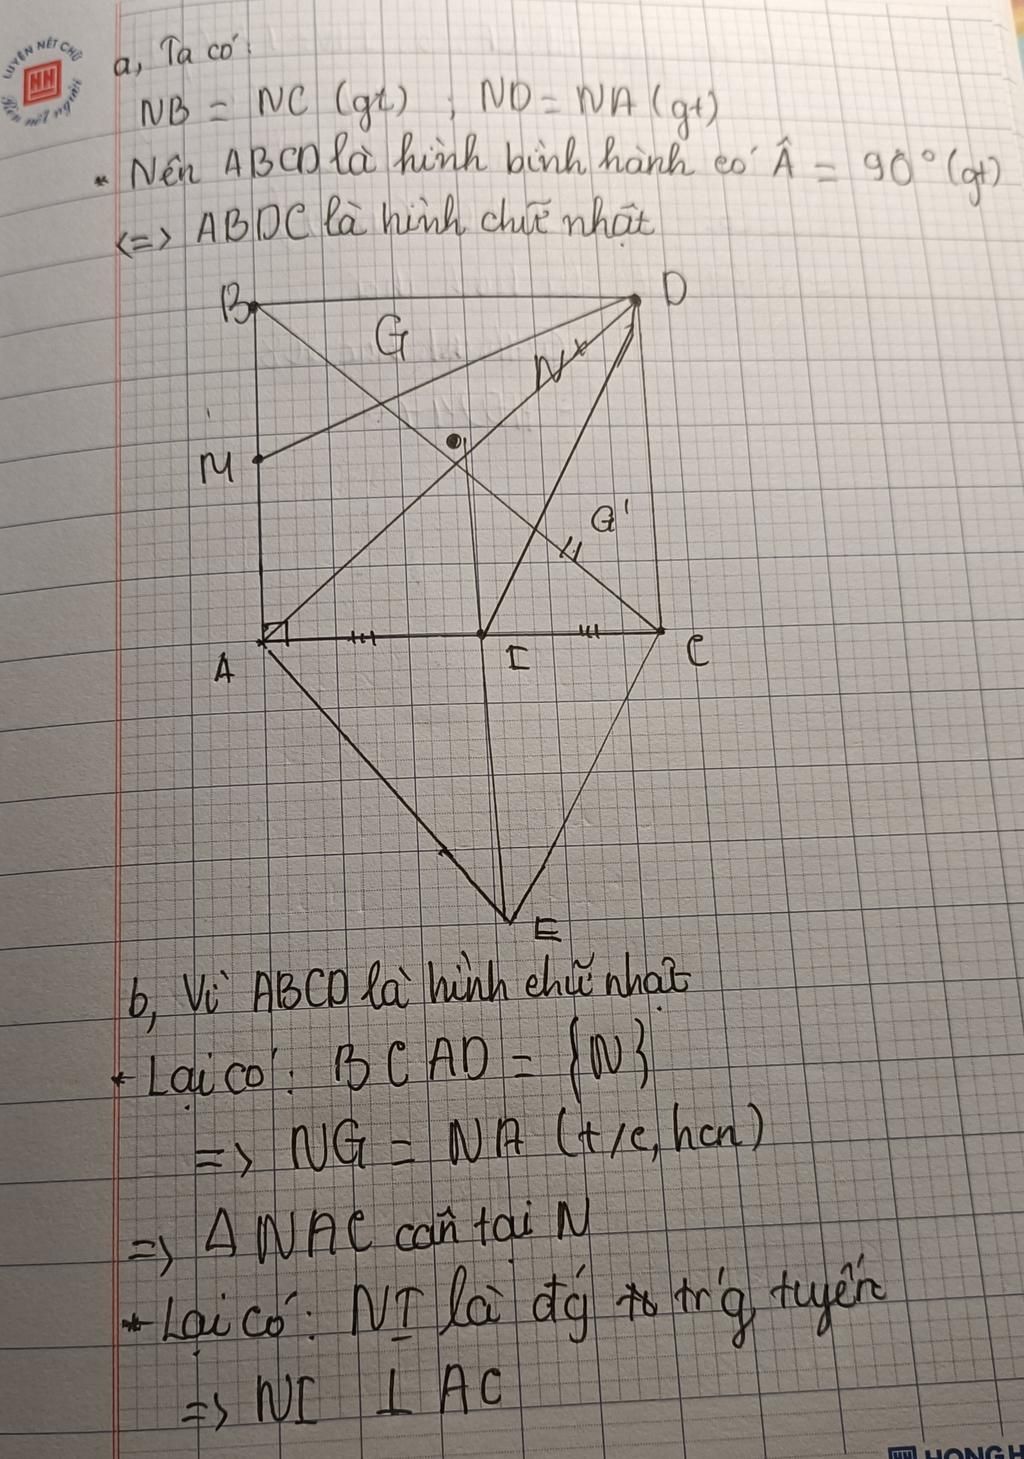 LUYỆN NÉT CHỮ
HN
Rèn nết người
a, Ta có:
NB = NC (gt) ; ND = NA (gt)
* Nên ABCD là hình bình hành có Â = 90° (gt)
<=> ABDC là hình chữ nhật
B
D
G
N
M
G'
A
I
C
E
b, Vì ABCD là hình chữ nhật
* Lại có: BC AD = {N}
=> NG = NA (t/c, hcn)
=> Δ NAC cân tại N
* Lại có: NI là đg tr'g tuyến
=> NI ⊥ AC
HONG H